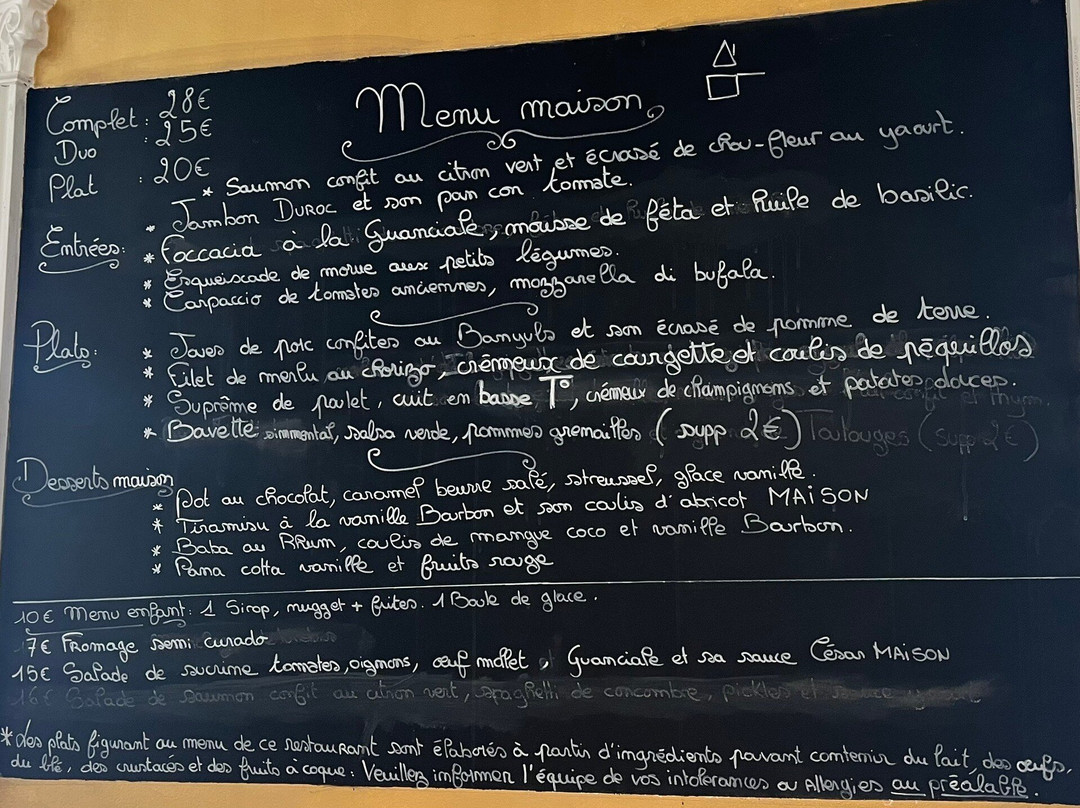 Menu maison
Complet : 28€
Duo : 25€
Plat : 20€
* Saumon confit au citron vert et écrasé de chou-fleur au yaourt.
* Jambon DUROC et son pan con tomate.
Entrées:
* Foccacia à la Guanciale, mousse de féta et huile de basilic.
* Esqueixcade de morue aux petits légumes.
* Carpaccio de tomates anciennes, mozzarella di bufala.
Plats:
* Joues de porc confites au Banyuls et son écrasé de pomme de terre.
* Filet de merlu au chorizo, crèmeux de courgette et coulis de péquillos
* Suprême de poulet, cuit en basse T°, crémeux de champignons et patates douces.
* Bavette simmental, salsa verde, pommes grenailles (supp 2€) Toulouges (supp 2€)
Desserts maison
* Pot au chocolat, caramel beurre salé, streussel, glace vanille.
* Tiramisu à la vanille Bourbon et son coulis d'abricot MAiSON
* Baba au Rhum, coulis de mangue coco et vanille Bourbon.
* Pana cotta vanille et fruits rouge
10€ Menu enfant: 1 Sirop, nugget + frites. 1 Boule de glace.
7€ Fromage semi curado
15€ Salade de sucrine tomates, oignons, œuf mollet Guanciale et sa sauce César MAiSON
16€ Salade de saumon confit au citron vert, spaghetti de concombre, pickles et sauce yaourt
* des plats figurant au menu de ce restaurant sont élaborés à partir d'ingrédients pouvant contenir du lait, des œufs,
du blé, des crustacés et des fruits à coque. Veuillez informer l'équipe de vos intolérances ou Allergies au préalable.